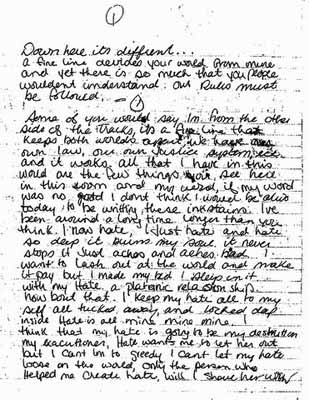 ①
Down here its diffrent...
a fine line devides your world from mine
and yet there is so much that you people
wouldent understand. our Rules must
be followed. —①
Some of you would say Im from the other
side of the tracks, its a fine line that
keeps both worlds apart, we have
our own law, our own Justice system
and it works, all that I have in this
world are the few things you see here
in this room and my word, if my word
was no good I dont think I would be alive
today to be writing these
been around a long time longer than you
think. I now hate, I just hate and hate
so deep it burns my soul. it never
stops it just aches and aches Bad. I
want to Lash out at the world and make
it pay but I made my bed I sleep in it
with my Hate, a platonic relation ship.
hows bout that. I keep my hate all to my
self all tucked away, and locked deep
inside Hate is all mine mine mine. I
think that my hate is going to be my destruction
my executioner, Hate wants me to let her out
but I cant Im to greedy I cant let my hate
loose on the world, only the person who
Helped me create hate, will I share her with